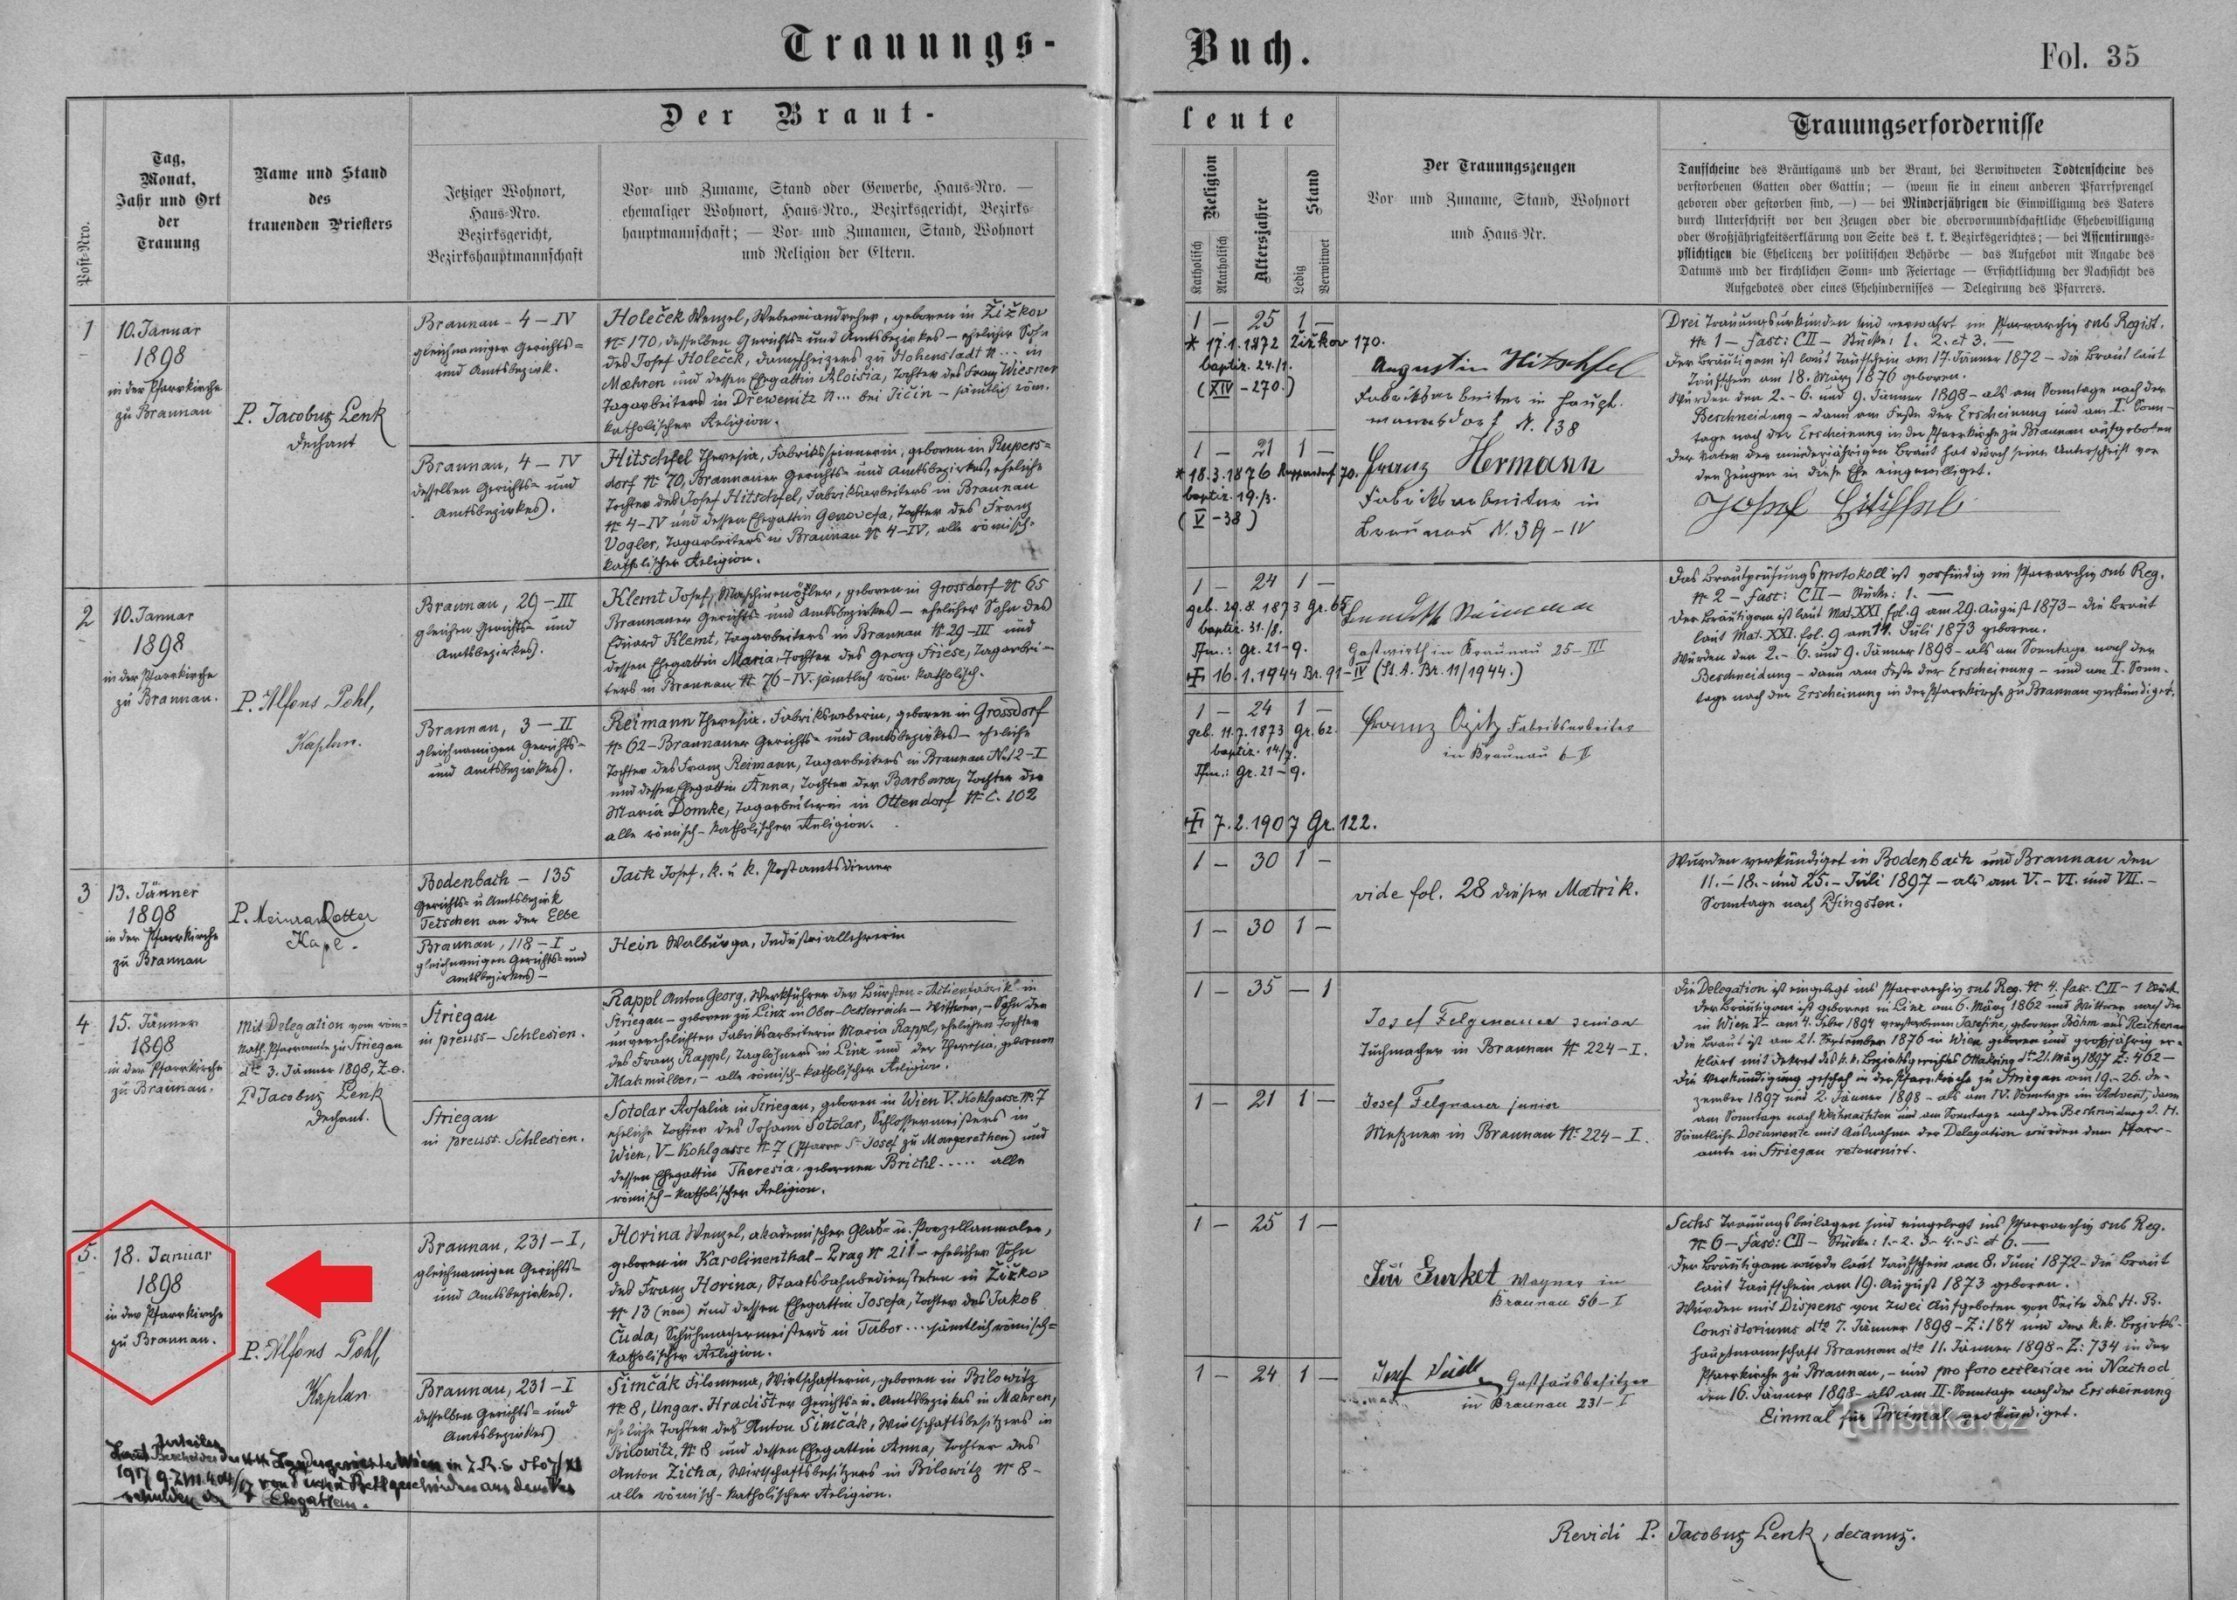 Trauungs-
Buch.
Fol. 35
Der Braut-
leute
Post-Nro.
Tag,
Monat,
Jahr und Ort
der
Trauung
Name und Stand
des
trauenden Priesters
Jetziger Wohnort,
Haus-Nro.
Bezirksgericht,
Bezirkshauptmannschaft
Vor- und Zuname, Stand oder Gewerbe, Haus-Nro. —
ehemaliger Wohnort, Haus-Nro., Bezirksgericht, Bezirks-
hauptmannschaft; — Vor- und Zunamen, Stand, Wohnort
und Religion der Eltern.
Religion
Katholisch
Akatholisch
Altersjahre
Stand
Ledig
Verwitwet
Der Trauungszeugen
Vor- und Zuname, Stand, Wohnort
und Haus-Nr.
Trauungserfordernisse
Taufscheine des Bräutigams und der Braut, bei Verwitweten Todtenscheine des
verstorbenen Gatten oder Gattin; — (wenn sie in einem anderen Pfarrsprengel
geboren oder gestorben sind, —) — bei Minderjährigen die Einwilligung des Vaters
durch Unterschrift vor den Zeugen oder die obervormundschaftliche Ehebewilligung
oder Großjährigkeitserklärung von Seite des k. k. Bezirksgerichtes; — bei Assentirungs-
pflichtigen die Ehelicenz der politischen Behörde — das Aufgebot mit Angabe des
Datums und der kirchlichen Sonn- und Feiertage — Ersichtlichung der Nachsicht des
Aufgebotes oder eines Ehehindernisses — Delegirung des Pfarrers.
1
10. Januar
1898
in der Pfarrkirche
zu Braunau
P. Jacobus Lenk
Dechant
Braunau - 4 - IV
gleichnamiger Gerichts=
und Amtsbezirk.
Holeček Wenzel, Webereiandreher, geboren in Žižkov
N° 170, desselben Gerichts- und Amtsbezirkes – ehelicher Sohn
des Josef Holeček, Dampfheizers zu Hohenstadt N... in
Mæhren und dessen Ehegattin Aloisia, Tochter des Franz Wiesner
Tagarbeiters in Dřewenitz N... bei Jičin – sämtlich röm.
katholischer Religion.
Braunau, 4 - IV
desselben Gerichts- und
Amtsbezirkes).
Hitschfel Theresia, Fabriksspinnerin, geboren in Rupers=
dorf N° 70, Braunauer Gerichts- und Amtsbezirkes, eheliche
Tochter des Josef Hitschfel, Fabriksarbeiters in Braunau
N° 4-IV und dessen Ehegattin Genovefa, Tochter des Franz
Vogler, Tagarbeiters in Braunau N° 4-IV, alle römisch-
katholischer Religion.
1 – 25 1 –
* 17.1.1872 Žižkov 170.
baptiz. 24./1.
(XIV - 270.)
1 – 21 1 –
* 18.3.1876 Ruppersdorf 70.
baptiz. 19./3.
(V - 38)
Augustin Hitschfel
Fabriksarbeiter in Haupt-
mannsdorf N. 138
Franz Hermann
Fabriksarbeiter in
Braunau N. 39 - IV
Drei Trauungsurkunden sind verwahrt im Pfarrarchiv sub Regist.
N° 1 – fasc: CII – Stücke: 1. 2. et 3. –
Der Bräutigam ist laut Taufschein am 17. Jänner 1872 – die Braut laut
Taufschein am 18. März 1876 geboren.
Wurden den 2. - 6. und 9. Jänner 1898 – als am Sonntage nach der
Beschneidung – dann am Feste der Erscheinung und am I. Sonn-
tage nach der Erscheinung in der Pfarrkirche zu Braunau aufgeboten
Der Vater der minderjährigen Braut hat durch seine Unterschrift vor
den Zeugen in diese Ehe eingewilliget.
Josef Hitschfel
2
10. Januar
1898
in der Pfarrkirche
zu Braunau.
P. Alfons Pohl,
Kaplan.
Braunau, 29 - III
gleichen Gerichts- und
Amtsbezirkes).
Klemt Josef, Maschinenöhler, geboren in Grossdorf N° 65
Braunauer Gerichts- und Amtsbezirkes – ehelicher Sohn des
Eduard Klemt, Tagarbeiters in Braunau N° 29-III und
dessen Ehegattin Maria, Tochter des Georg Friese, Tagarbei-
ters in Braunau N° 76-IV. sämtlich röm. katholisch.
Braunau, 3 - II
gleichnamigen Gerichts-
und Amtsbezirkes).
Reimann Theresia. Fabriksweberin, geboren in Grossdorf
N° 62 – Braunauer Gerichts- und Amtsbezirkes – eheliche
Tochter des Franz Reimann, Tagarbeiters in Braunau N° 12-I
und dessen Ehegattin Anna, Tochter der Barbara, Tochter der
Maria Domke, Tagarbeiterin in Ottendorf N° C. 102
alle römisch-katholischer Religion.
1 – 24 1 –
geb. 29.8.1873 Gr. 65
baptiz. 31./8.
Tfm.: Gr. 21 - 9.
✝ 16.1.1944 Br. 91-IV (St. A. Br. 11/1944.)
1 – 24 1 –
geb. 11.7.1873 Gr. 62.
baptiz. 14/7.
Tfm.: Gr. 21 - 9.
✝ 7.2.1907 Gr. 122.
Gastwirth in Braunau 25-III
Franz Opitz Fabriksarbeiter
in Braunau 6-II
Das Brautprüfungsprotokoll ist vorfindig im Pfarrarchiv sub Reg.
N° 2 – fasc: CII – Stücke: 1. –
Der Bräutigam ist laut Mat. XXI fol. 9 am 29. August 1873 – die Braut
laut Mat. XXI. fol. 9 am 11. Juli 1873 geboren.
Wurden den 2. - 6. und 9. Jänner 1898 – als am Sonntage nach der
Beschneidung – dann am Feste der Erscheinung – und am I. Sonn-
tage nach der Erscheinung in der Pfarrkirche zu Braunau verkündiget.
3
13. Jänner
1898
in der Pfarrkirche
zu Braunau
P. Meinrad Rotter
Kapl.
Bodenbach – 135
Gerichts- u Amtsbezirk
Tetschen an der Elbe
Jack Josef, k. u k. Postamtsdiener
Braunau, 118 - I
gleichnamigen Gerichts- und
Amtsbezirkes) –
Hein Walburga, Industriallehrerin
1 – 30 1 –
1 – 30 1 –
vide fol. 28 dieser Matrik.
Wurden verkündiget in Bodenbach und Braunau den
11. - 18. - und 25. - Juli 1897 – als am V. - VI. und VII. -
Sonntage nach Pfingsten.
4
15. Jänner
1898
in der Pfarrkirche
zu Braunau.
Mit Delegation vom röm-
kath. Pfarramte zu Striegau
dto 3. Jänner 1898, Z. o.
P Jacobus Lenk
Dechant.
Striegau
in preuss-Schlesien.
Rappl Anton Georg, Werkführer der Bürsten-Actienfabrik in
Striegau – geboren zu Linz in Ober-Oesterreich – Wittwer, – Sohn der
unverehelichten Fabriksarbeiterin Maria Rappl, ehelichen Tochter
des Franz Rappl, Taglöhners in Linz und der Theresia, gebornen
Mahmüller, – alle römisch-katholischer Religion.
Striegau
in preuss. Schlesien.
Sotolar Rosalia in Striegau, geboren in Wien V. Kohlgasse N° 7
eheliche Tochter des Johann Sotolar, Schlossermeisters in
Wien, V – Kohlgasse N° 7 (Pfarre St Josef zu Margarethen) und
dessen Ehegattin Theresia, gebornen Brichl ..... alle
römisch-katholischer Religion.
1 – 35 – 1
1 – 21 1 –
Josef Felgenauer senior
Tuchmacher in Braunau N° 224-I.
Josef Felgnauer junior
Meßner in Braunau N° 224-I.
Die Delegation ist eingelegt ins Pfarrarchiv sub Reg. N° 4. fasc. CII – 1 Stück
Der Bräutigam ist geboren in Linz am 6. März 1862 und Wittwer nach der
in Wien V – am 4. Feber 1894 verstorbenen Josefine, gebornen Böhm aus Reichenau
Die Braut ist am 21. September 1876 in Wien geboren und großjährig er-
klärt mit Dekret des k. k. Bezirksgerichtes Ottakring dto 21. März 1897 Z: 462 –
Die Verkündigung geschah in der Pfarrkirche zu Striegau am 19. - 26. De-
zember 1897 und 2. Jänner 1898 – als am IV. Sonntage im Advent, dann
am Sonntage nach Weihnachten und am Sonntage nach der Beschneidung J. H.
Sämtliche Documente mit Ausnahme der Delegation wurden dem Pfarr-
amte in Striegau retournirt.
5.
18. Januar
1898
in der Pfarrkirche
zu Braunau.
P. Alfons Pohl,
Kaplan
Braunau, 231 - I,
gleichnamigen Gerichts-
und Amtsbezirkes).
Horina Wenzel, akademischer Glas- u. Porzellanmaler,
geboren in Karolinenthal – Prag N° 211 – ehelicher Sohn
des Franz Horina, Staatsbahnbediensteten in Žižkov
N° 13 (neu) und dessen Ehegattin Josefa, Tochter des Jakob
Čuda, Schuhmachermeisters in Tabor ... sämtlich römisch=
katholischer Religion.
Braunau, 231 - I
desselben Gerichts- und
Amtsbezirkes)
Simčák Filomena, Wirtschafterin, geboren in Bilowitz
N° 8, Ungar. Hradister Gerichts- u. Amtsbezirkes in Mæhren,
eheliche Tochter des Anton Simčák, Wirtschaftsbesitzers in
Bilowitz, N° 8 und dessen Ehegattin Anna, Tochter des
Anton Zicha, Wirtschaftsbesitzers in Bilowitz N° 8 –
alle römisch-katholischer Religion.
1 – 25 1 –
1 – 24 1 –
Jiří Wagner in
Braunau 56-I
Josef Gasthausbesitzer
in Braunau 231-I
Sechs Trauungsbeilagen sind eingelegt ins Pfarrarchiv sub Reg.
N° 6 – fasc: CII – Stücke: 1. - 2. 3. - 4. - 5. et 6. –
Der Bräutigam wurde laut Taufschein am 8. Juni 1872 – die Braut
laut Taufschein am 19. August 1873 geboren.
Wurden mit Dispens von zwei Aufgeboten von Seite des H. B.
Consistoriums dto 7. Jänner 1898 – Z: 184 und der k. k. Bezirks-
hauptmannschaft Braunau dto 11. Jänner 1898 – Z: 734 in der
Pfarrkirche zu Braunau, – und pro foro ecclesiae in Nachod
den 16. Jänner 1898 – als am II. Sonntage nach der Erscheinung
Einmal für Dreimal verkündiget.
Turistika.cz
Laut Bescheides des k. k. Landesgerichtes Wien in Z. R. S.
1917
Ehegatten.
Revidi P. Jacobus Lenk, decanus.